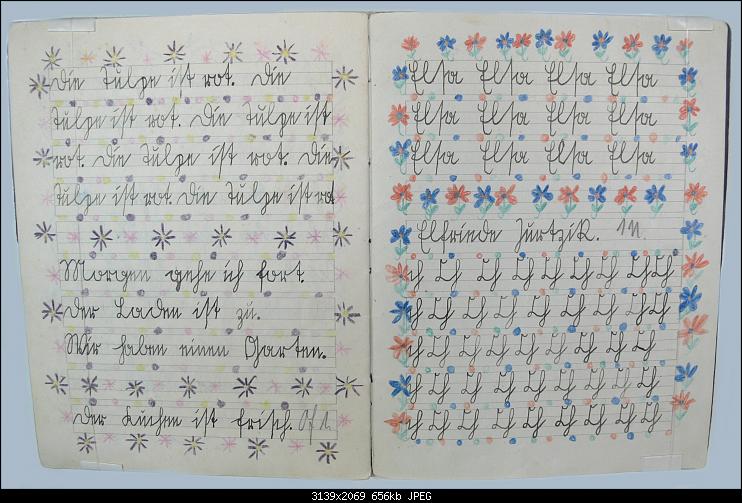 Die Tulpe ist rot. Die
Tulpe ist rot. Die Tulpe ist
rot. Die Tulpe ist rot. Die
Tulpe ist rot. Die Tulpe ist rot
Morgen gehe ich fort.
Der Laden ist zu.
Wir haben einen Garten.
Der Kuchen ist frisch.
Elsa Elsa Elsa Elsa
Elsa Elsa Elsa Elsa
Elsa Elsa Elsa Elsa
Elfriede Zurtzik.
Ch Ch Ch Ch Ch Ch Ch Ch Ch
Ch Ch Ch Ch Ch Ch Ch Ch Ch
Ch Ch Ch Ch Ch Ch Ch Ch Ch
Ch Ch Ch Ch Ch Ch Ch Ch Ch
Ch Ch Ch Ch Ch Ch Ch Ch Ch
3139x2069 656kb JPEG